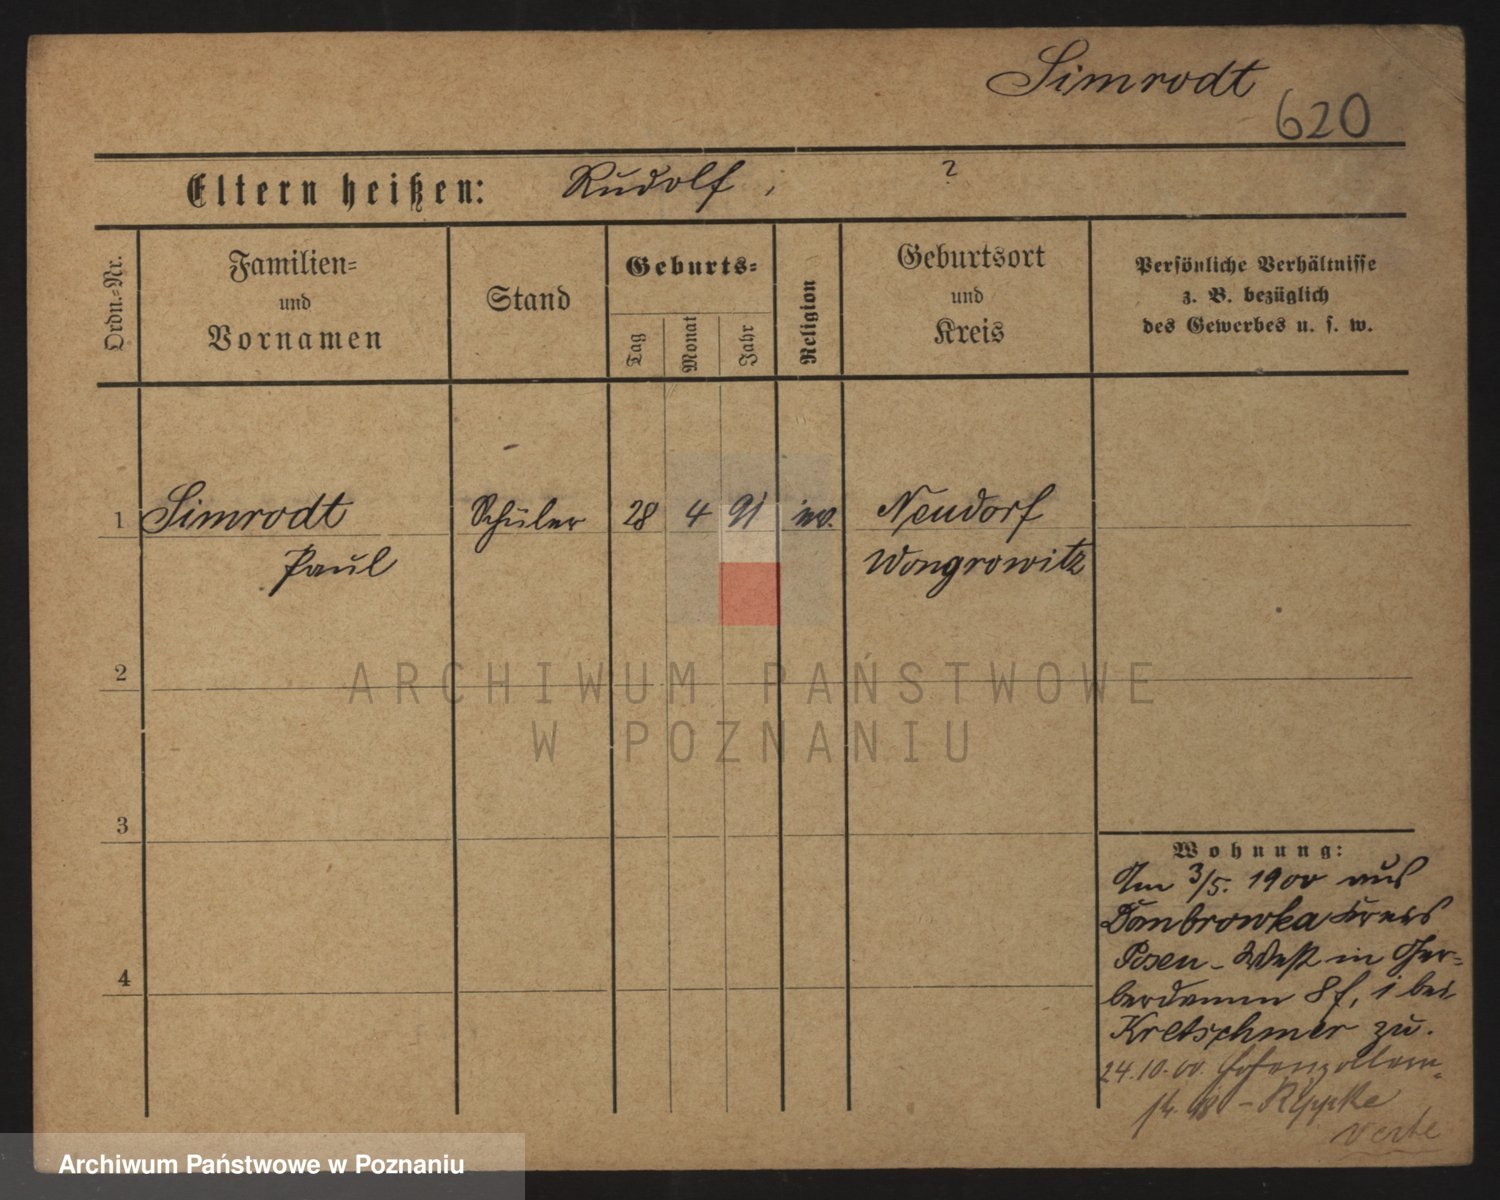 Simrodt
620
Eltern heißen: Rudolf, ?
Ordn.-Nr.
Familien-
und
Vornamen
Stand
Geburts-
Tag
Monat
Jahr
Religion
Geburtsort
und
Kreis
Persönliche Verhältnisse
z. B. bezüglich
des Gewerbes u. s. w.
1 Simrodt Schüler 28 4 91 ev. Neudorf
Paul Wongrowitz
2
3
4
Wohnung:
Am 3/5. 1900 aus
Dombrowka Kreis
Posen-West in Ger-
berdamm 8 f, i bei
Kretschmer zu.
24.10.00. Hohenzollern-
str. - Rippke
verte
ARCHIWUM PAŃSTWOWE
W POZNANIU
Archiwum Państwowe w Poznaniu